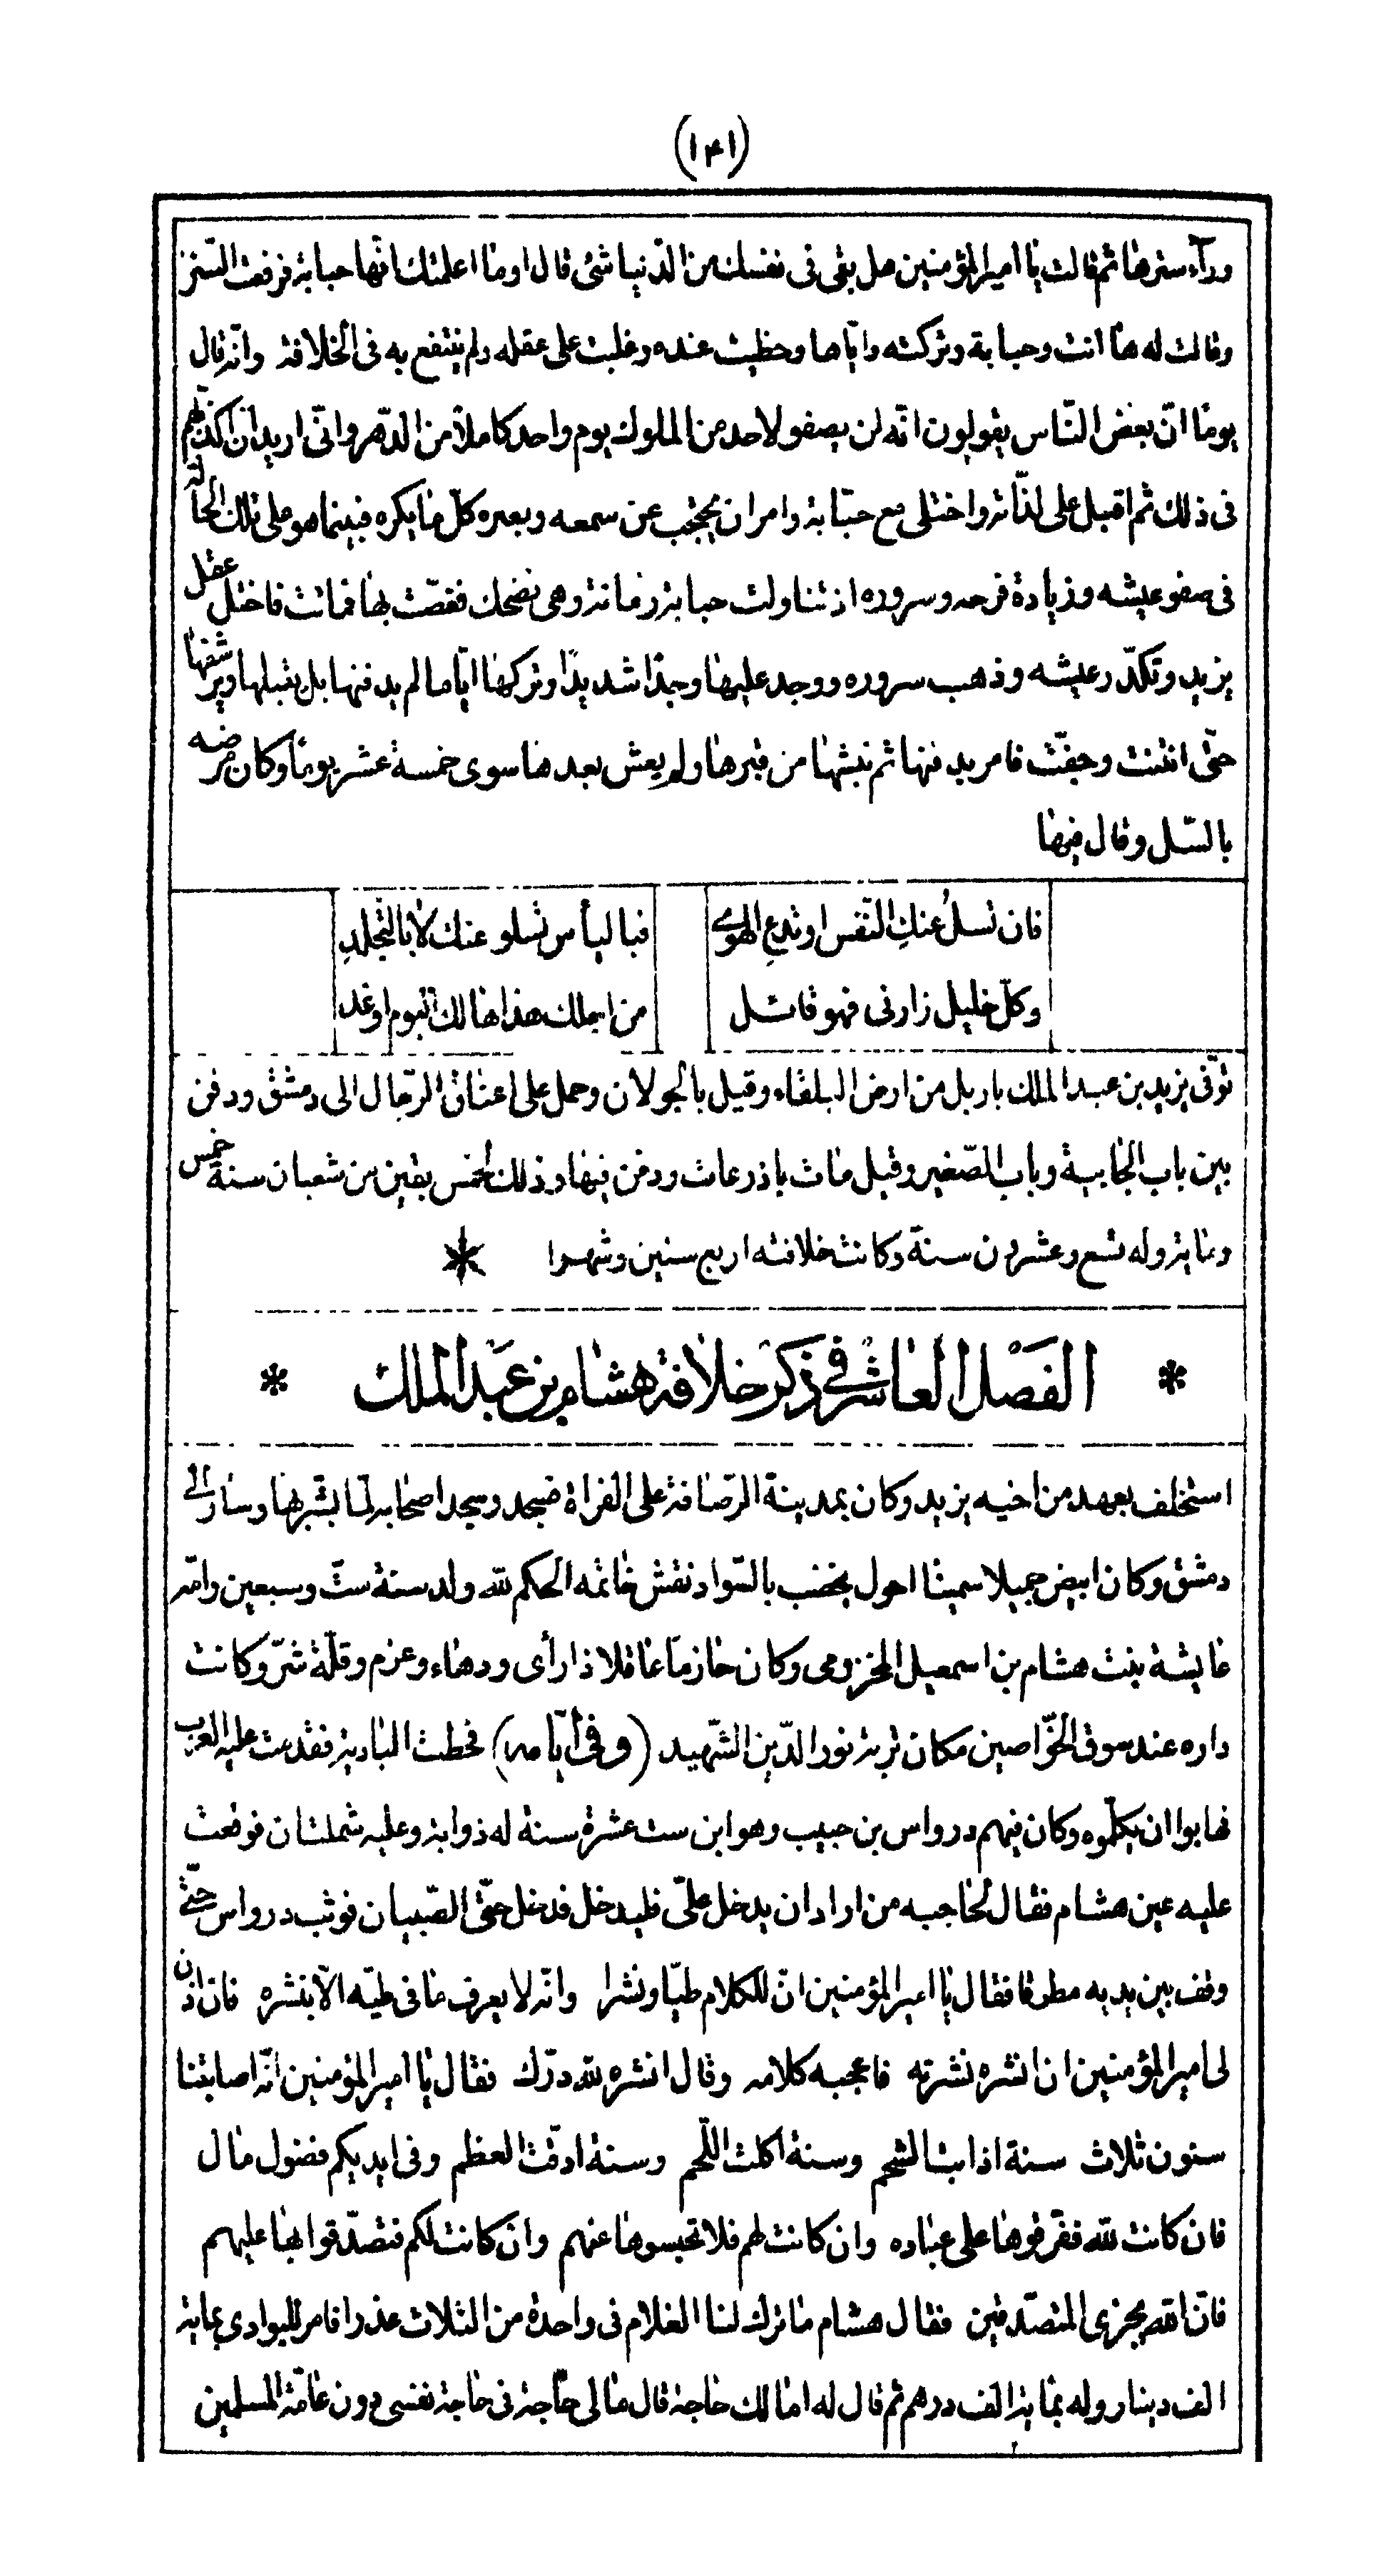 (١٤١)
ورآء سترها ثم قالت يا امير المؤمنين هل بقى فى نفسك من الدّنيا شئ قال اوما اعلمتك انّها حبابة فرفعت السّتر
وقالت له ها انت وحبابة وتركته واياها وحظيت عنده وغلبت على عقله ولم ينتفع به فى الخلافة وانّه قال
يوما انّ بعض النّاس يقولون انّه لن يصفو لاحد من الملوك يوم واحد كاملا من الدّهر وانّى اريد ان اكذّبهم
فى ذلك ثم اقبل على لذّاته واختلى مع حبّابة وامر ان يحجب عن سمعه وبصره كلّ ما يكره فبينما هو على تلك الحالة
فى صفو عيشه وزيادة فرحه وسروره اذ تناولت حبابة رمانة وهى تضحك فغصّت بها فماتت فاختل عقل
يزيد وتكدّر عيشه وذهب سروره ووجد عليها وجدًا شديدًا وتركها ايّاما لم يدفنها بل يقبلها ويرشفها
حتّى انتنت وجيفت فامر بدفنها ثم نبشها من قبرها ولم يعش بعدها سوى خمسة عشر يوما وكان مرضه
بالسّل وقال فيها
فان تسلُ عنكِ النّفس او تدعِ الهوى فباليأس تسلو عنك لا بالتّجلدِ
وكلّ خليل زارنى فهو قائل من اجلك هذا هالك اليوم او غد
توّفى يزيد بن عبد الملك باربل من ارض البلقاء وقيل بالجولان وحمل على اعناق الرّجال الى دمشق ودفن
بين باب الجابية وباب الصّغير وقيل مات باذرعات ودفن فيها وذلك لخمس بقين من شعبان سنة خمس
ومائة وله تسع وعشرون سنة وكانت خلافته اربع سنين وشهرا *
* الفَصْل العاشر في ذكر خلافة هشام بن عَبد الملك *
استخلف بعهد من اخيه يزيد وكان بمدينة الرّصافة على الفراة فسجد وسجد اصحابه لمّا بشّر بها وسار الى
دمشق وكان ابيض جميلا سمينا احول يخضب بالسّواد نقش خاتمه الحكم لله ولد سنة ستّ وسبعين وامّه
عايشة بنت هشام بن اسمعيل المخزومى وكان حازما عاقلا ذا رأى ودهاء وعزم وقلّة شرّ وكانت
داره عند سوق الخوّاصين مكان تربة نور الدّين الشّهيد (وفى أيّامه) قحطت البادية فقدمت عليه العرب
فهابوا ان يكلّموه وكان فيهم درواس بن حبيب وهو ابن ست عشرة سنة له ذوابة وعليه شملتان فوقعت
عليه عين هشام فقال لحاجبه من اراد ان يدخل علىّ فليدخل فدخل حتّى الصّبيان فوثب درواس حتّى
وقف بين يديه مطرقا فقال يا امير المؤمنين انّ للكلام طيّا ونشرا وانّه لا يعرف ما فى طيّه الّا بنشره فان اذن
لى امير المؤمنين ان انشره نشرته فاعجبه كلامه وقال انشره لله درّك فقال يا امير المؤمنين انّه اصابتنا
سنون ثلاث سنة اذابت الشّحم وسنة اكلت اللّحم وسنة ادقّت العظم وفى ايديكم فضول مال
فان كانت لله ففرّقوها على عباده وان كانت لهم فلا تحبسوها عنهم وان كانت لكم فتصدّقوا بها عليهم
فانّ الله يجزى المتصدّقين فقال هشام ما ترك لنا الغلام فى واحدة من الثلاث عذرا فامر للبوادى بماية
الف دينار وله بماية الف درهم ثم قال له امالك حاجة قال مالى حاجة فى حاجة نفسى دون عامّة المسلمين